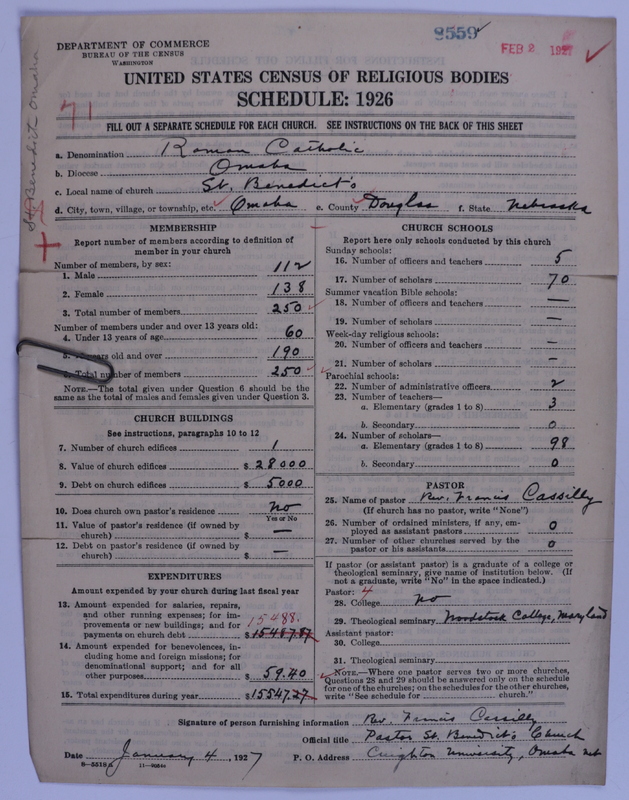 8559
DEPARTMENT OF COMMERCE
BUREAU OF THE CENSUS
WASHINGTON
FEB 2 1927
UNITED STATES CENSUS OF RELIGIOUS BODIES
SCHEDULE: 1926
71
St. Benedict Omaha
FILL OUT A SEPARATE SCHEDULE FOR EACH CHURCH. SEE INSTRUCTIONS ON THE BACK OF THIS SHEET
a. Denomination Roman Catholic
b. Diocese Omaha
c. Local name of church St. Benedict's
d. City, town, village, or township, etc. Omaha e. County Douglas f. State Nebraska
MEMBERSHIP
Report number of members according to definition of
member in your church
Number of members, by sex:
1. Male 112
2. Female 138
3. Total number of members 250
Number of members under and over 13 years old:
4. Under 13 years of age 60
years old and over 190
Total number of members 250
NOTE.—The total given under Question 6 should be
same as the total of males and females given under Question 3.
CHURCH BUILDINGS
See instructions, paragraphs 10 to 12
7. Number of church edifices 1
8. Value of church edifices $ 28000
9. Debt on church edifices $ 5000
10. Does church own pastor's residence no
Yes or No
11. Value of pastor's residence (if owned by
church) $ —
12. Debt on pastor's residence (if owned by
church) $ —
EXPENDITURES
Amount expended by your church during last fiscal year
13. Amount expended for salaries, repairs,
and other running expenses; for im-
provements or new buildings; and for 15488.
payments on church debt $ 15487.87
14. Amount expended for benevolences, in-
cluding home and foreign missions; for
denominational support; and for all
other purposes $ 59.40
15. Total expenditures during year $ 15547.27
CHURCH SCHOOLS
Report here only schools conducted by this church
Sunday schools:
16. Number of officers and teachers 5
17. Number of scholars 70
Summer vacation Bible schools:
18. Number of officers and teachers —
19. Number of scholars —
Week-day religious schools:
20. Number of officers and teachers —
21. Number of scholars —
Parochial schools:
22. Number of administrative officers 2
23. Number of teachers—
a. Elementary (grades 1 to 8) 3
b. Secondary 0
24. Number of scholars—
a. Elementary (grades 1 to 8) 98
b. Secondary 0
PASTOR
25. Name of pastor Rev. Francis Cassilly
(If church has no pastor, write "None")
26. Number of ordained ministers, if any, em-
ployed as assistant pastors 0
27. Number of other churches served by the
pastor or his assistants 0
If pastor (or assistant pastor) is a graduate of a college or
theological seminary, give name of institution below. (If
not a graduate, write "No" in the space indicated.)
Pastor: 4
28. College no
29. Theological seminary Woodstock College, Maryland
Assistant pastor:
30. College
31. Theological seminary
NOTE.—Where one pastor serves two or more churches,
Questions 28 and 29 should be answered only on the schedule
for one of the churches; on the schedules for the other churches,
write "See schedule for church."
Signature of person furnishing information Rev. Francis Cassilly
Official title Pastor St. Benedict's Church
Date January 4, 1927 P. O. Address Creighton University, Omaha Neb
8—5518a 11—9054a